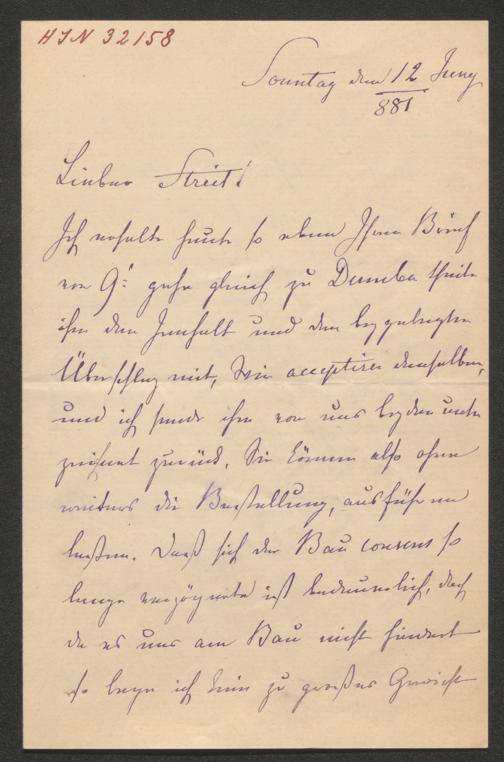 HIN 32158
Sonntag den 12 Juny
881
Lieber Streit!
Ich erhalte heute so eben Ihren Brief
von 9: gehe gleich zu Dumba theile
ihm den Innhalt und den beygelegten
Überschlag mit, Wir acceptiren denselben,
und ich sende ihn von uns beyden unter
zeichnet zurück. Sie können also ohne
weiters die Bestellung, ausführen
laßen. Daß sich der Bau consens so
lange verzögerte ist bedauerlich, doch
da es uns am Bau nicht hindert
so lege ich kein zu großes Gewicht